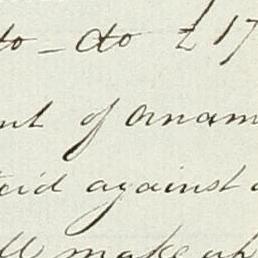 to - do £17
nt of ornam
teid against a
ll make up